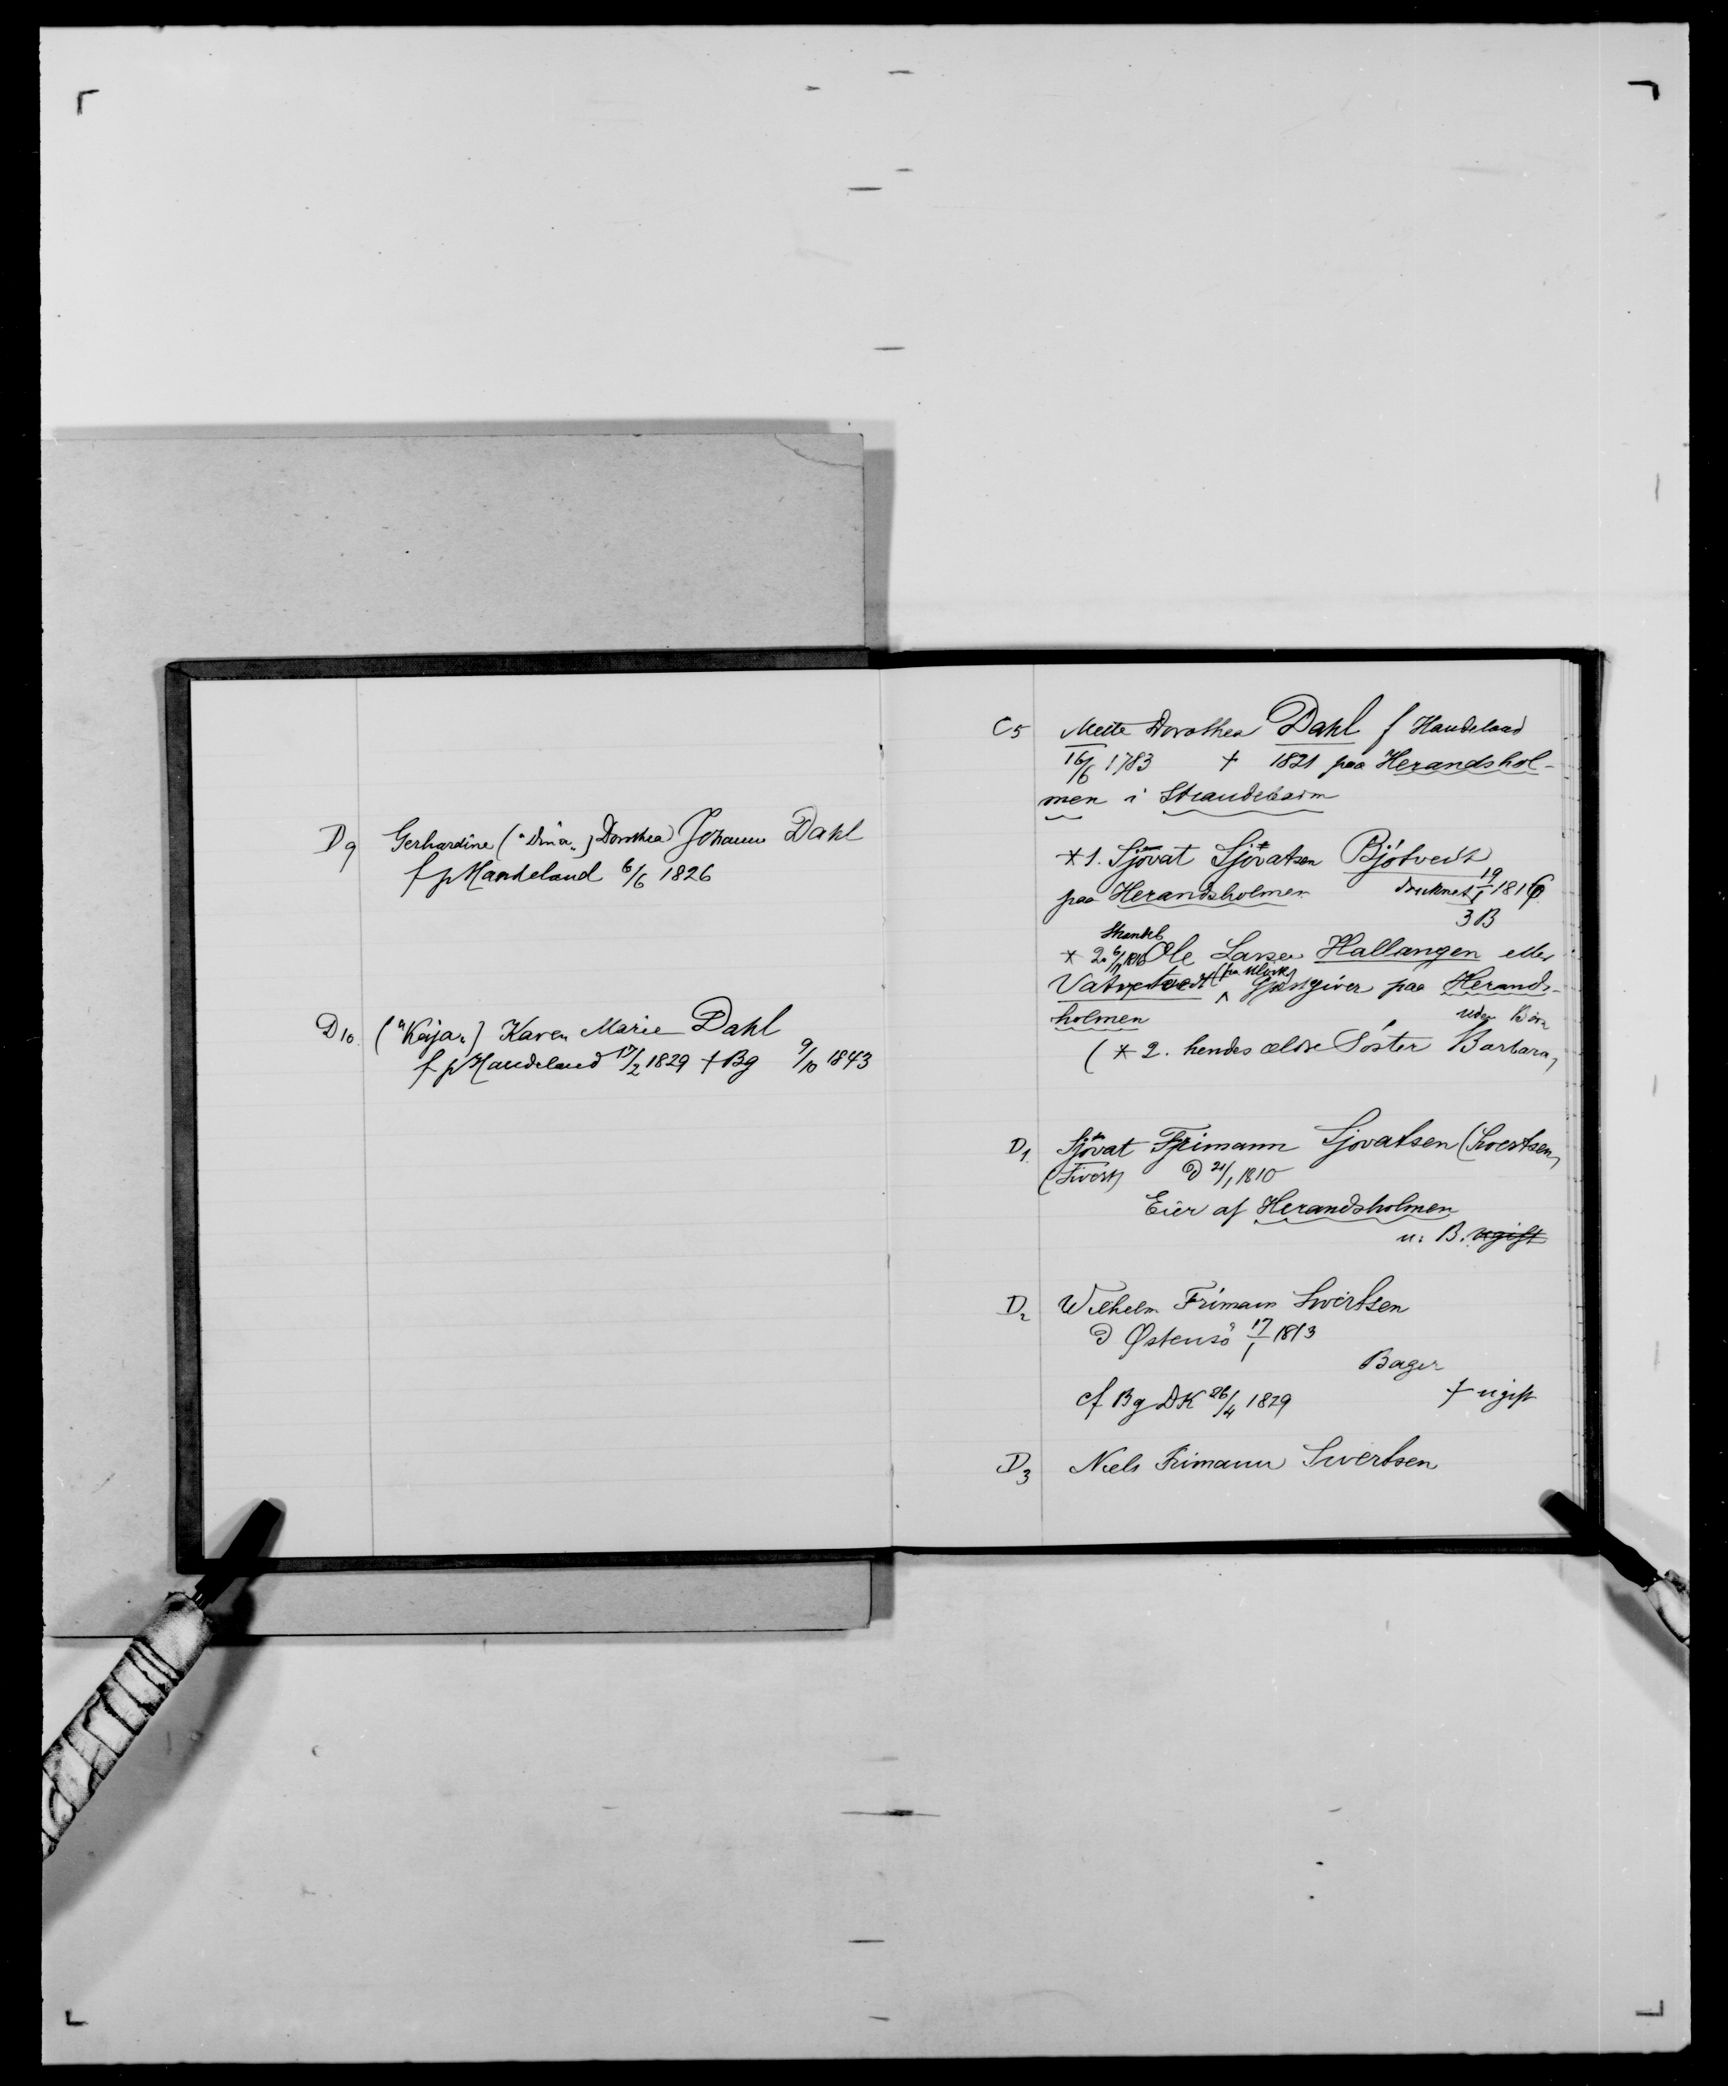 D9 Gerhardine ("Dina") Dorothea Johanne Dahl
f p Handeland 6/6 1826
D10. ("Kaja") Karen Marie Dahl
f p Handeland 17/2 1829 + Bg 9/10 1843
C5 Mette Dorothea Dahl f Handeland
16/6 1783 + 1821 paa Herandshol-
men i Strandebarm
* 1. Sjovat Sjovatsen Bjotvedt
paa Herandsholmen druknet 19/1 1816
3 B
Strandeb
* 2. 6/7 1818 Ole Larsen Hallangen eller
(fra Ulvik)
Gjestgiver paa Herands-
holmen uden Børn
(* 2. hendes ældre Søster Barbara)
D1. Sjovat Frimann Sjovatsen (Sivertsen)
(Sivert) D 21/1 1810
Eier af Herandsholmen
u. B. ugift
D2 Wilhelm Frimann Sivertsen
D Østensö 17/1 1813
Bager
cf Bg DK 26/4 1829 + ugift
D3 Niels Frimann Sivertsen